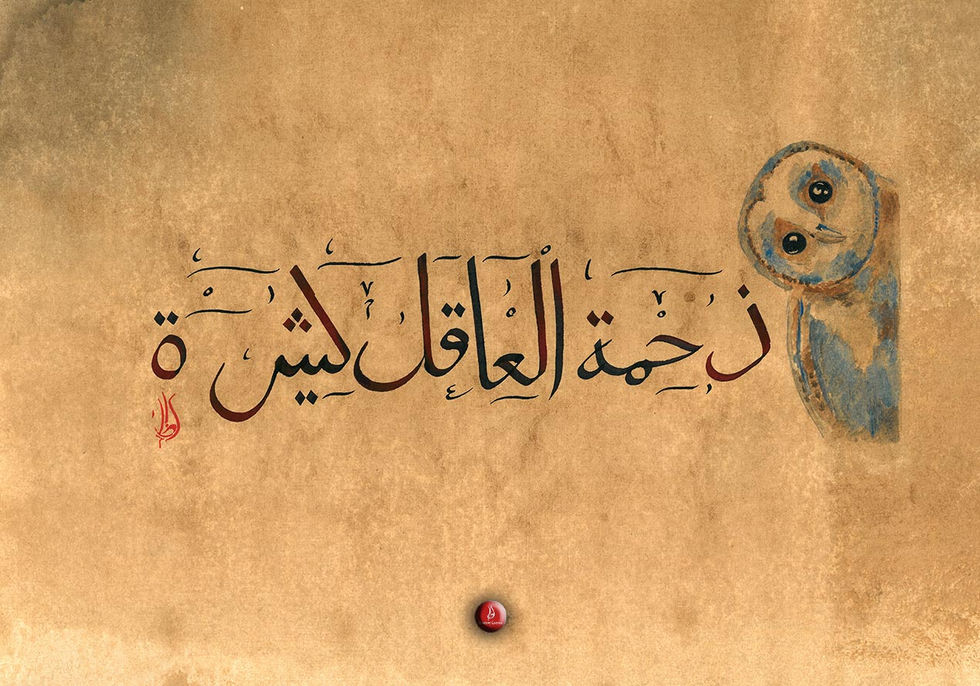 زحمة العاقل كثيرة